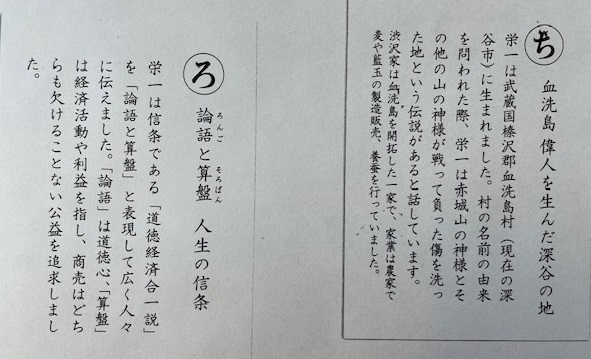 ち
血洗島 偉人を生んだ深谷の地
栄一は武蔵国榛沢郡血洗島村(現在の深
谷市)に生まれました。村の名前の由来
を問われた際、栄一は赤城山の神様とそ
の他の山の神様が戦って負った傷を洗っ
た地という伝説があると話しています。
渋沢家は血洗島を開拓した一家で、家業は農家で
麦や藍玉の製造販売、養蚕を行っていました。
ろ
論語と算盤 人生の信条
ろんご そろばん
栄一は信条である「道徳経済合一説」
を「論語と算盤」と表現して広く人々
に伝えました。「論語」は道徳心、「算盤」
は経済活動や利益を指し、商売はどち
らも欠けることない公益を追求しまし
た。